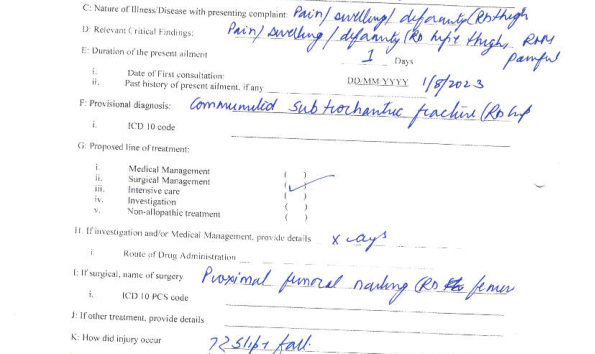 C: Nature of Illness/Disease with presenting complaint: Pain/ swelling/ deformity (Rt) thigh
D: Relevant Critical Findings: Pain/ swelling/ deformity (Rt) hip + thigh. ROM
painful
E: Duration of the present ailment 1 Days
i. Date of First consultation: DD/MM/YYYY 1/8/2023
ii. Past history of present ailment, if any
F: Provisional diagnosis: Communited sub trochantric fracture (Rt) hip
i. ICD 10 code
G: Proposed line of treatment:
i. Medical Management ( )
ii. Surgical Management (✓)
iii. Intensive care ( )
iv. Investigation ( )
v. Non-allopathic treatment ( )
H. If investigation and/or Medical Management, provide details x rays
i. Route of Drug Administration
I: If surgical, name of surgery Proximal femoral nailing (Rt) femur
i. ICD 10 PCS code
J: If other treatment, provide details
K: How did injury occur slip + fall.